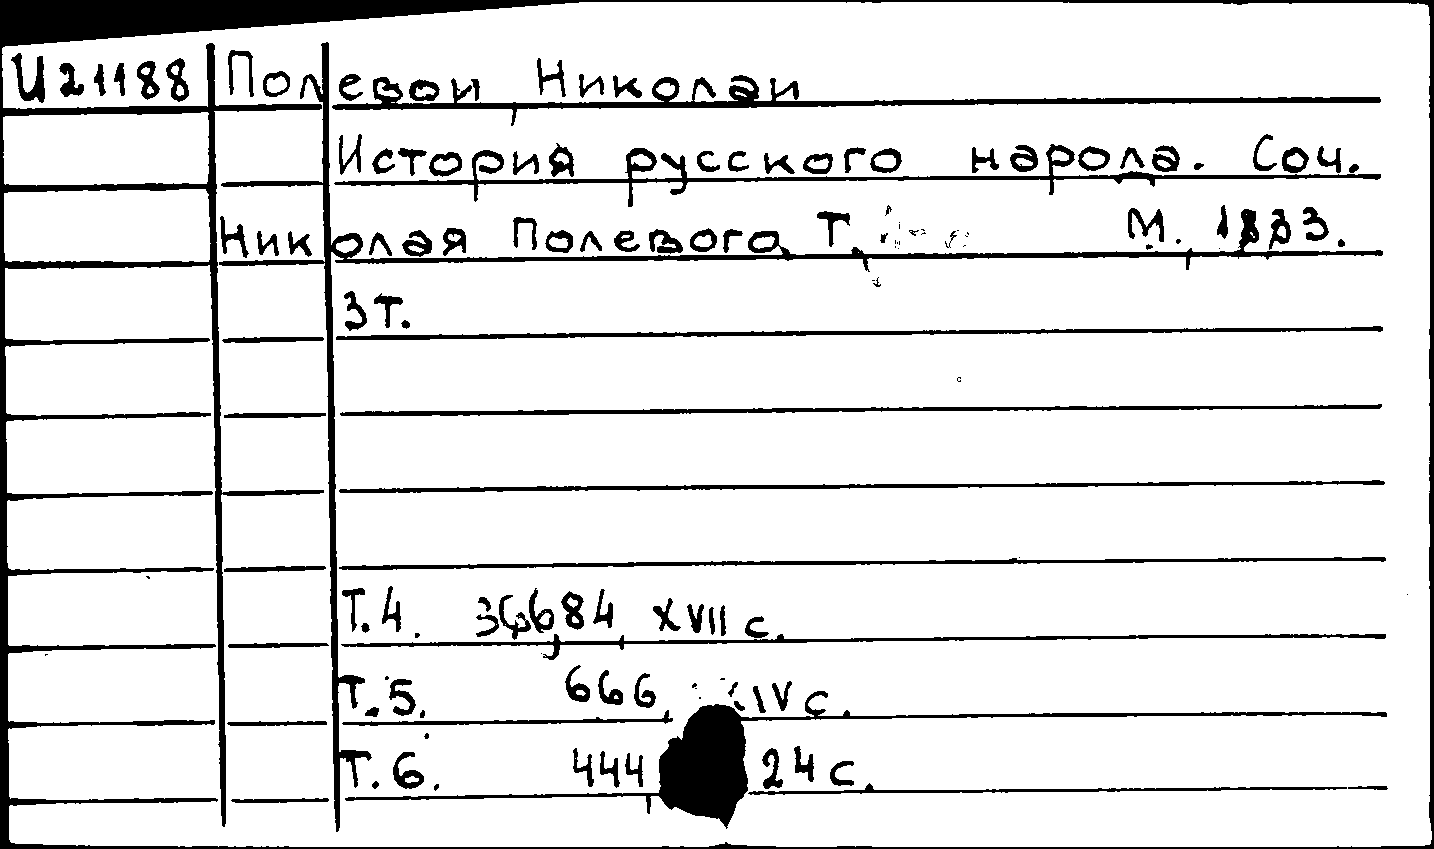 И21188 Полевои, Николаи
История русского народа. Соч.
Николая Полевого, Т. М., 1833.
3т.
Т.4. 384, XVII с.
Т.5. 666, XIV с.
Т.6. 444, 24 с.